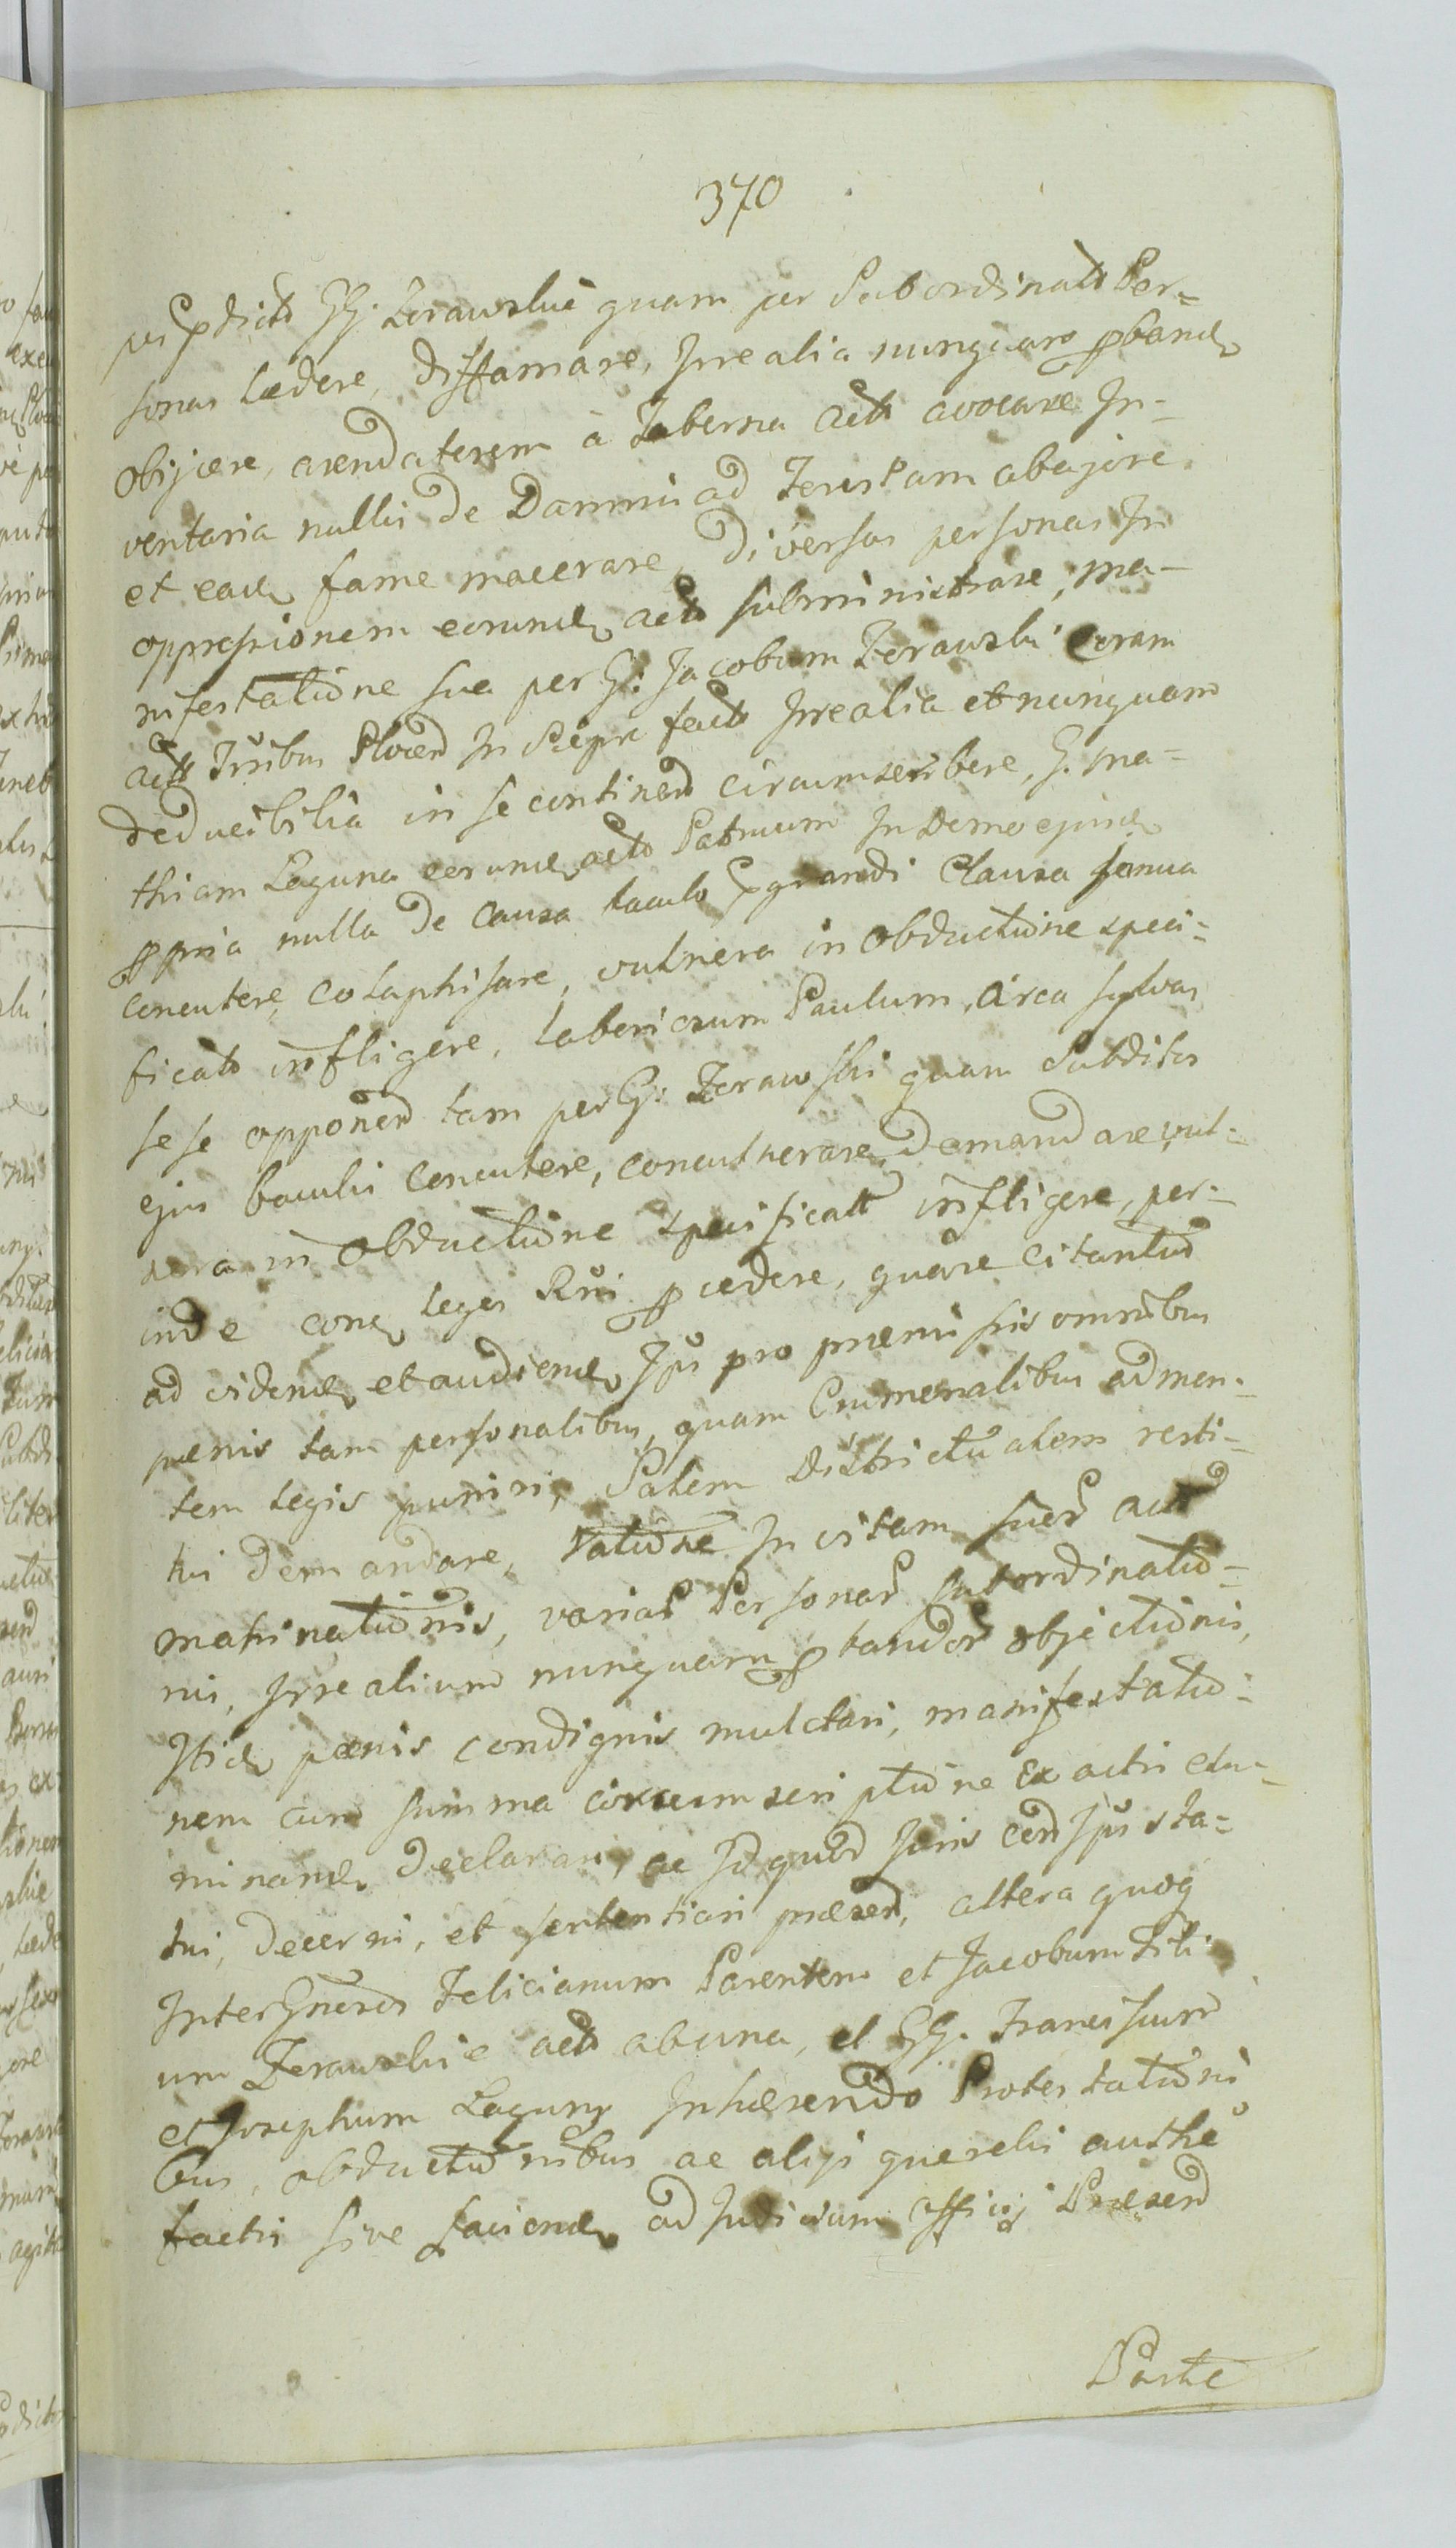 370
per pdict GG. Zerawskie quam per Subordinat Per=
sonas laedere, diffamare, Irrealia nunquam pband
Obijcere, arendatorem à Taberna act avocare In-
ventaria nullis de Damnis ad Terestam abajere
et ead fame macerare, diversas personas In
oppressionem eorund act subministrare, ma-
nifestatione sua per G. Jacobum Zerawski coram
actis Trribus Plocen In Sierpc fact Irrealia et nunquam
deducibilia in se continen circumscribere, G. Ma-
thiam Laguna eorund act Patruum In Domo ejusd
ppria nulla de causa baculo pgrandi Clausa Janua
concutere, colaphisare, vulnera in obductione speci=
ficat infligere, laboriosum Paulum circa sylvas
sese opponen tam per G. Zerawski quam subditos
ejus baculis concutere, convulnerare demandare, vul-
nera in obductione specificat infligere, per-
inde con leges Rni pcedere, quare citantur
ad vidend et audiend Ips pro praemissis omnibus
paenis tam personalibus, quam Crumenalibus ad men-
tem legis puniri, Salem Districtualem resti-
tui demandare, ratione In vitam suor act
machinationis, variar Personar subordinatio=
nis, Irrealium nunquam p bandor objectionis,
Itid paenis condignis mulctari, manifestatio-
nem cum summa circumscriptione Ex actis elu-
minand declarari, ac Id quod Juris cen Ips sta=
tui, decerni, et sententiari praesen, altera quoq
Inter Gnosos Felicianum Parentem et Jacobum Fili-
um Zerawskie act ab una, et GG. Franciscum
et Josephum Laguny Inhaerendo Protestationi
bus, obductionibus ac alijs querelis authe
factis sive faciend ad Judicium officij Praesen
Parte